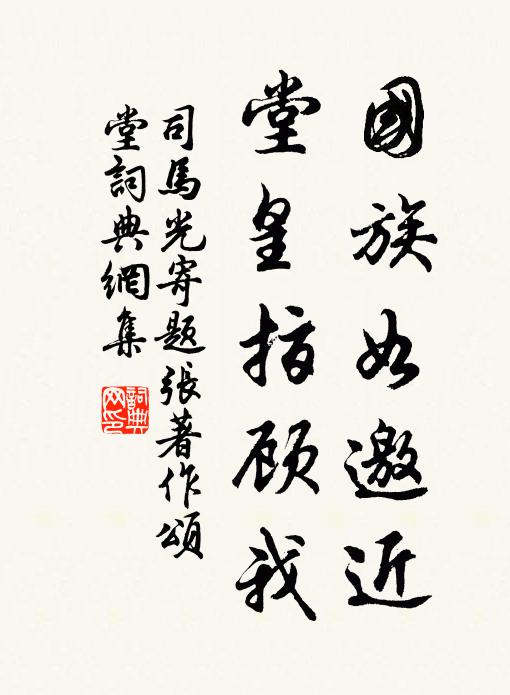 國族如邀近
堂皇指顾我
司馬光寄題張著作頌
堂詞典網集
詞典
网印